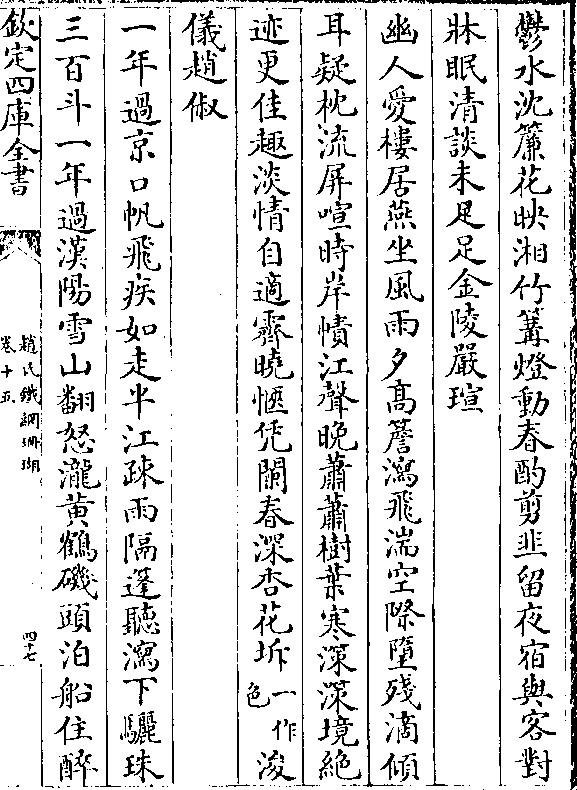 鬱水沈簾花映湘竹篝燈動春酌剪韭留夜宿與客對
牀眠清談未足足金陵嚴瑄
幽人愛樓居燕坐風雨夕高簷瀉飛湍空際墮殘滴傾
耳疑枕流屏喧時岸幘江聲晚蕭蕭樹葉寒深深境絶
迹更佳趣淡情自適霽曉愜凭闌春深杏花坼一作色浚
儀趙俶
一年過京口帆飛疾如走半江疎雨隔蓬聽瀉下驪珠
三百斗一年過漢陽雪山翻怒瀧黄鶴磯頭泊船住醉
欽定四庫全書
趙氏鐵網珊瑚
卷十五
四十七